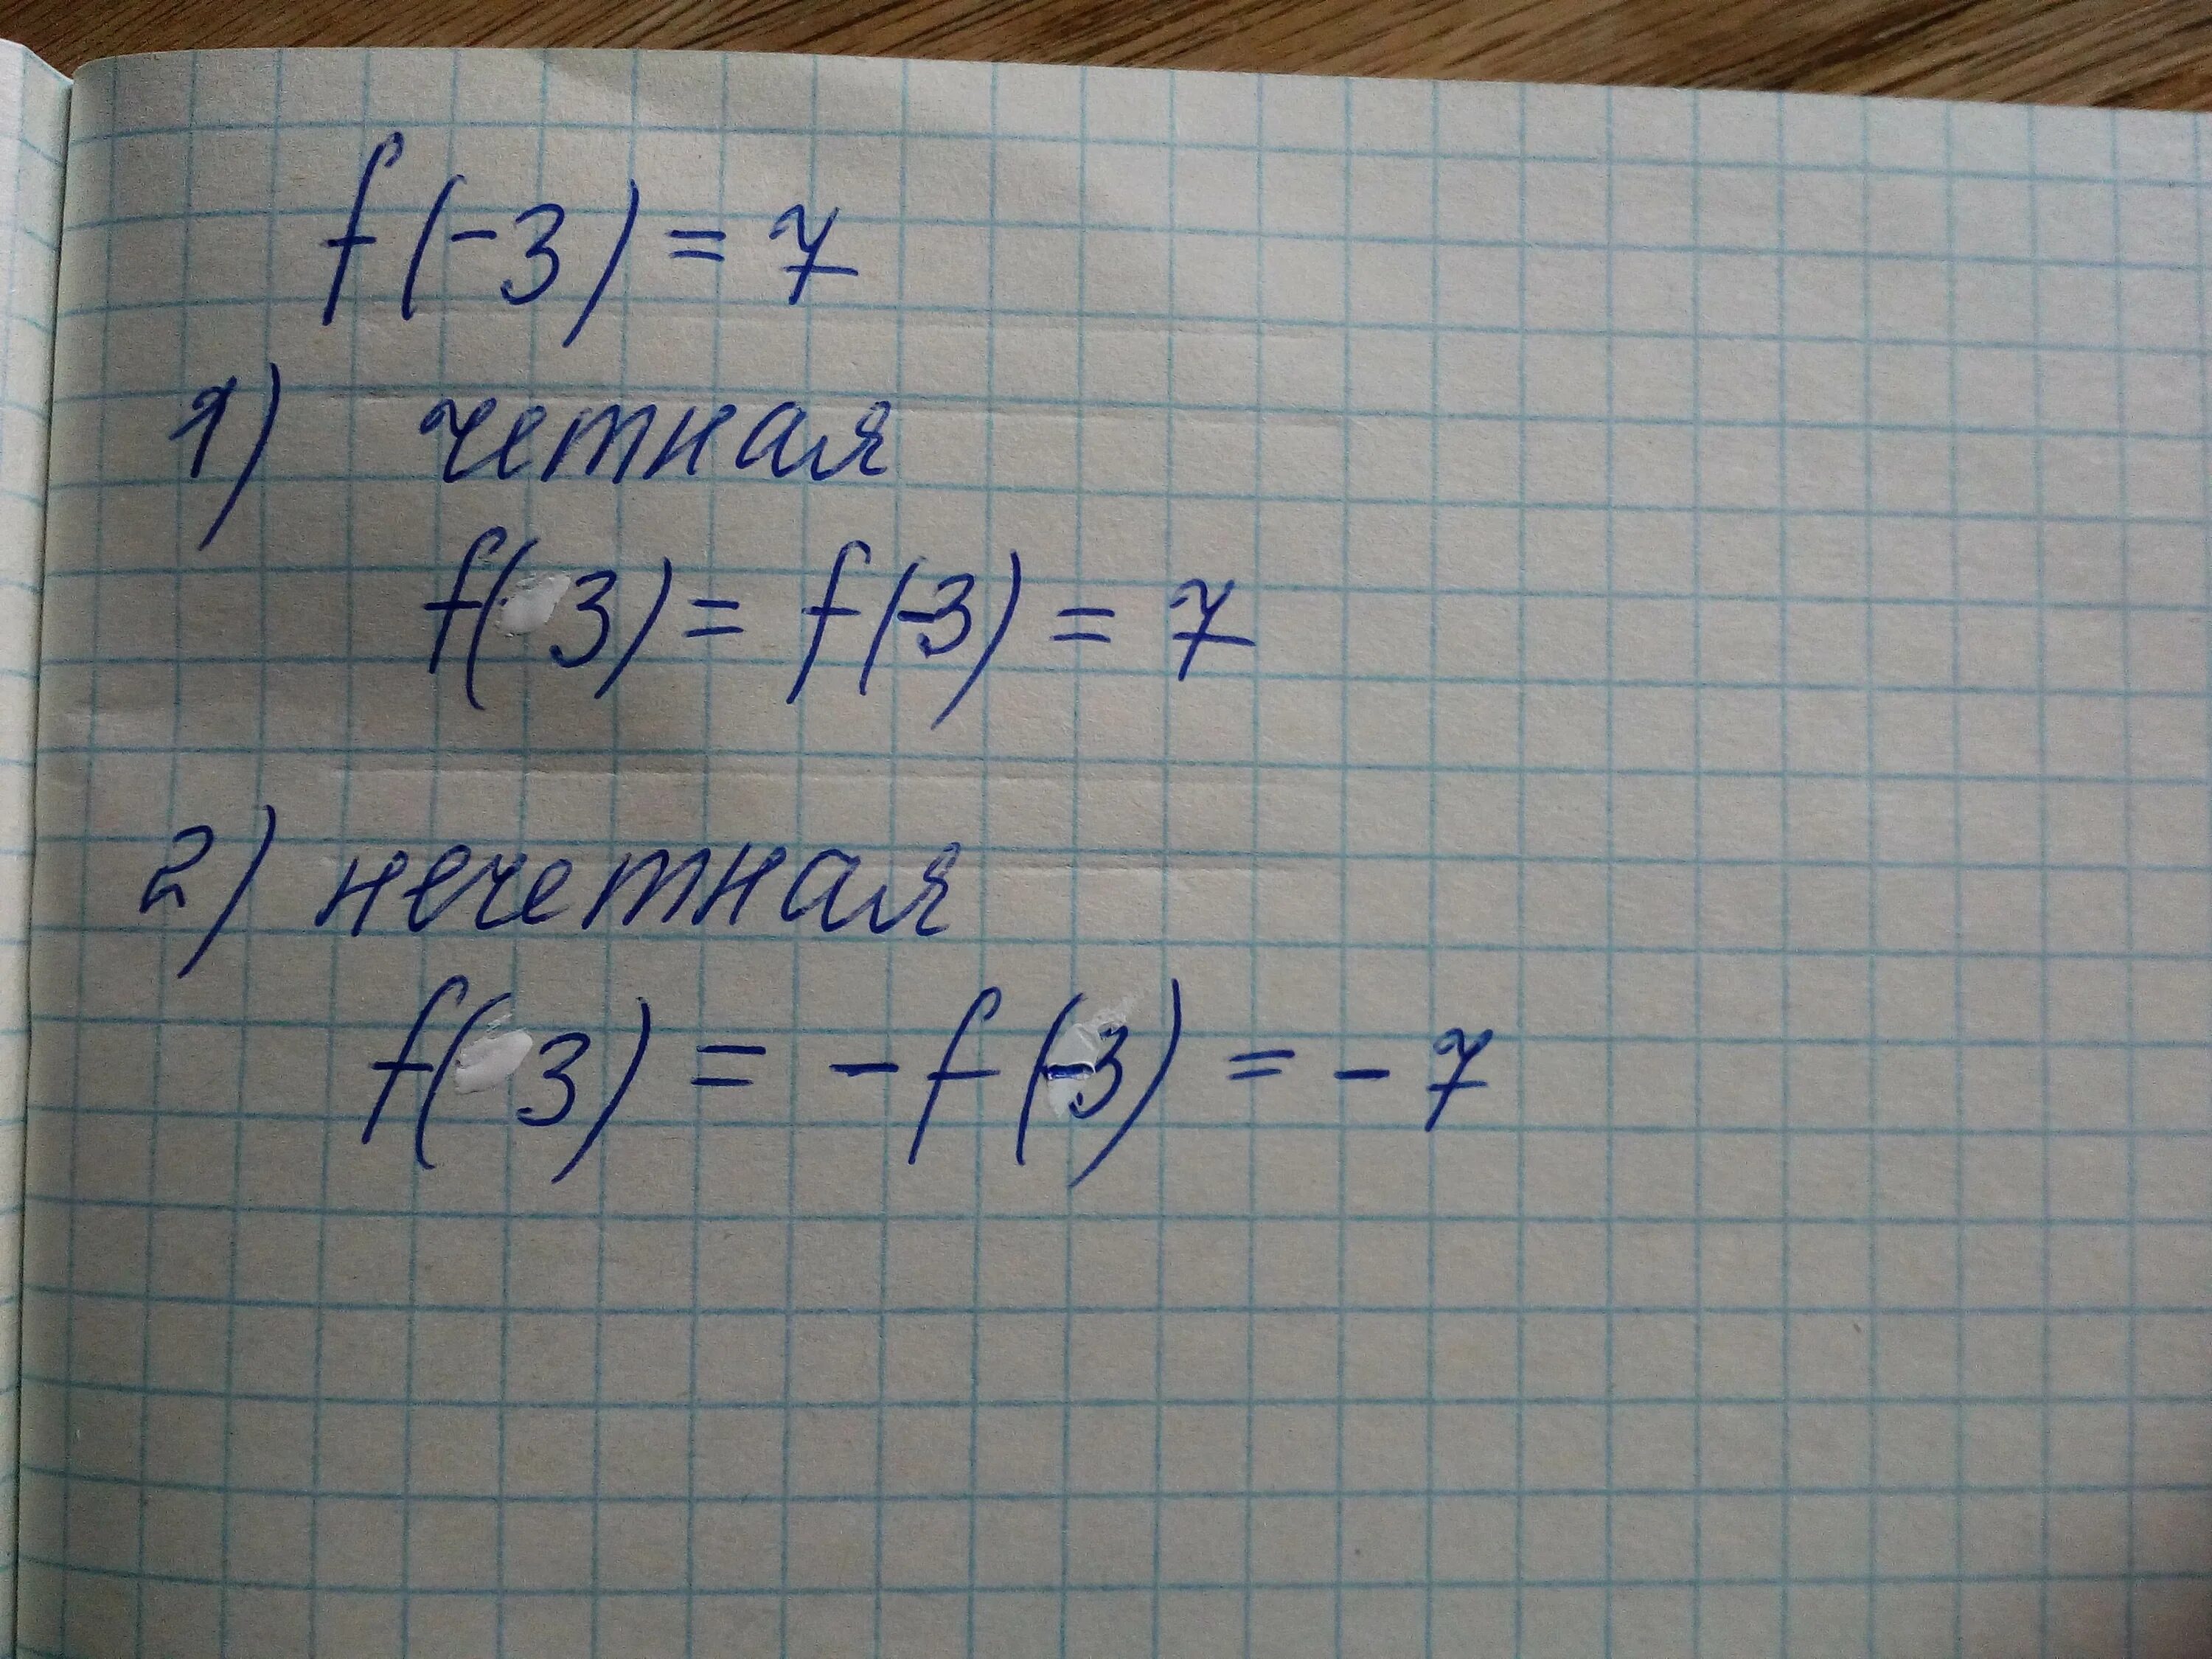 f(-3) = 7
1) четная
f(3) = f(-3) = 7
2) нечетная
f(3) = -f(-3) = -7